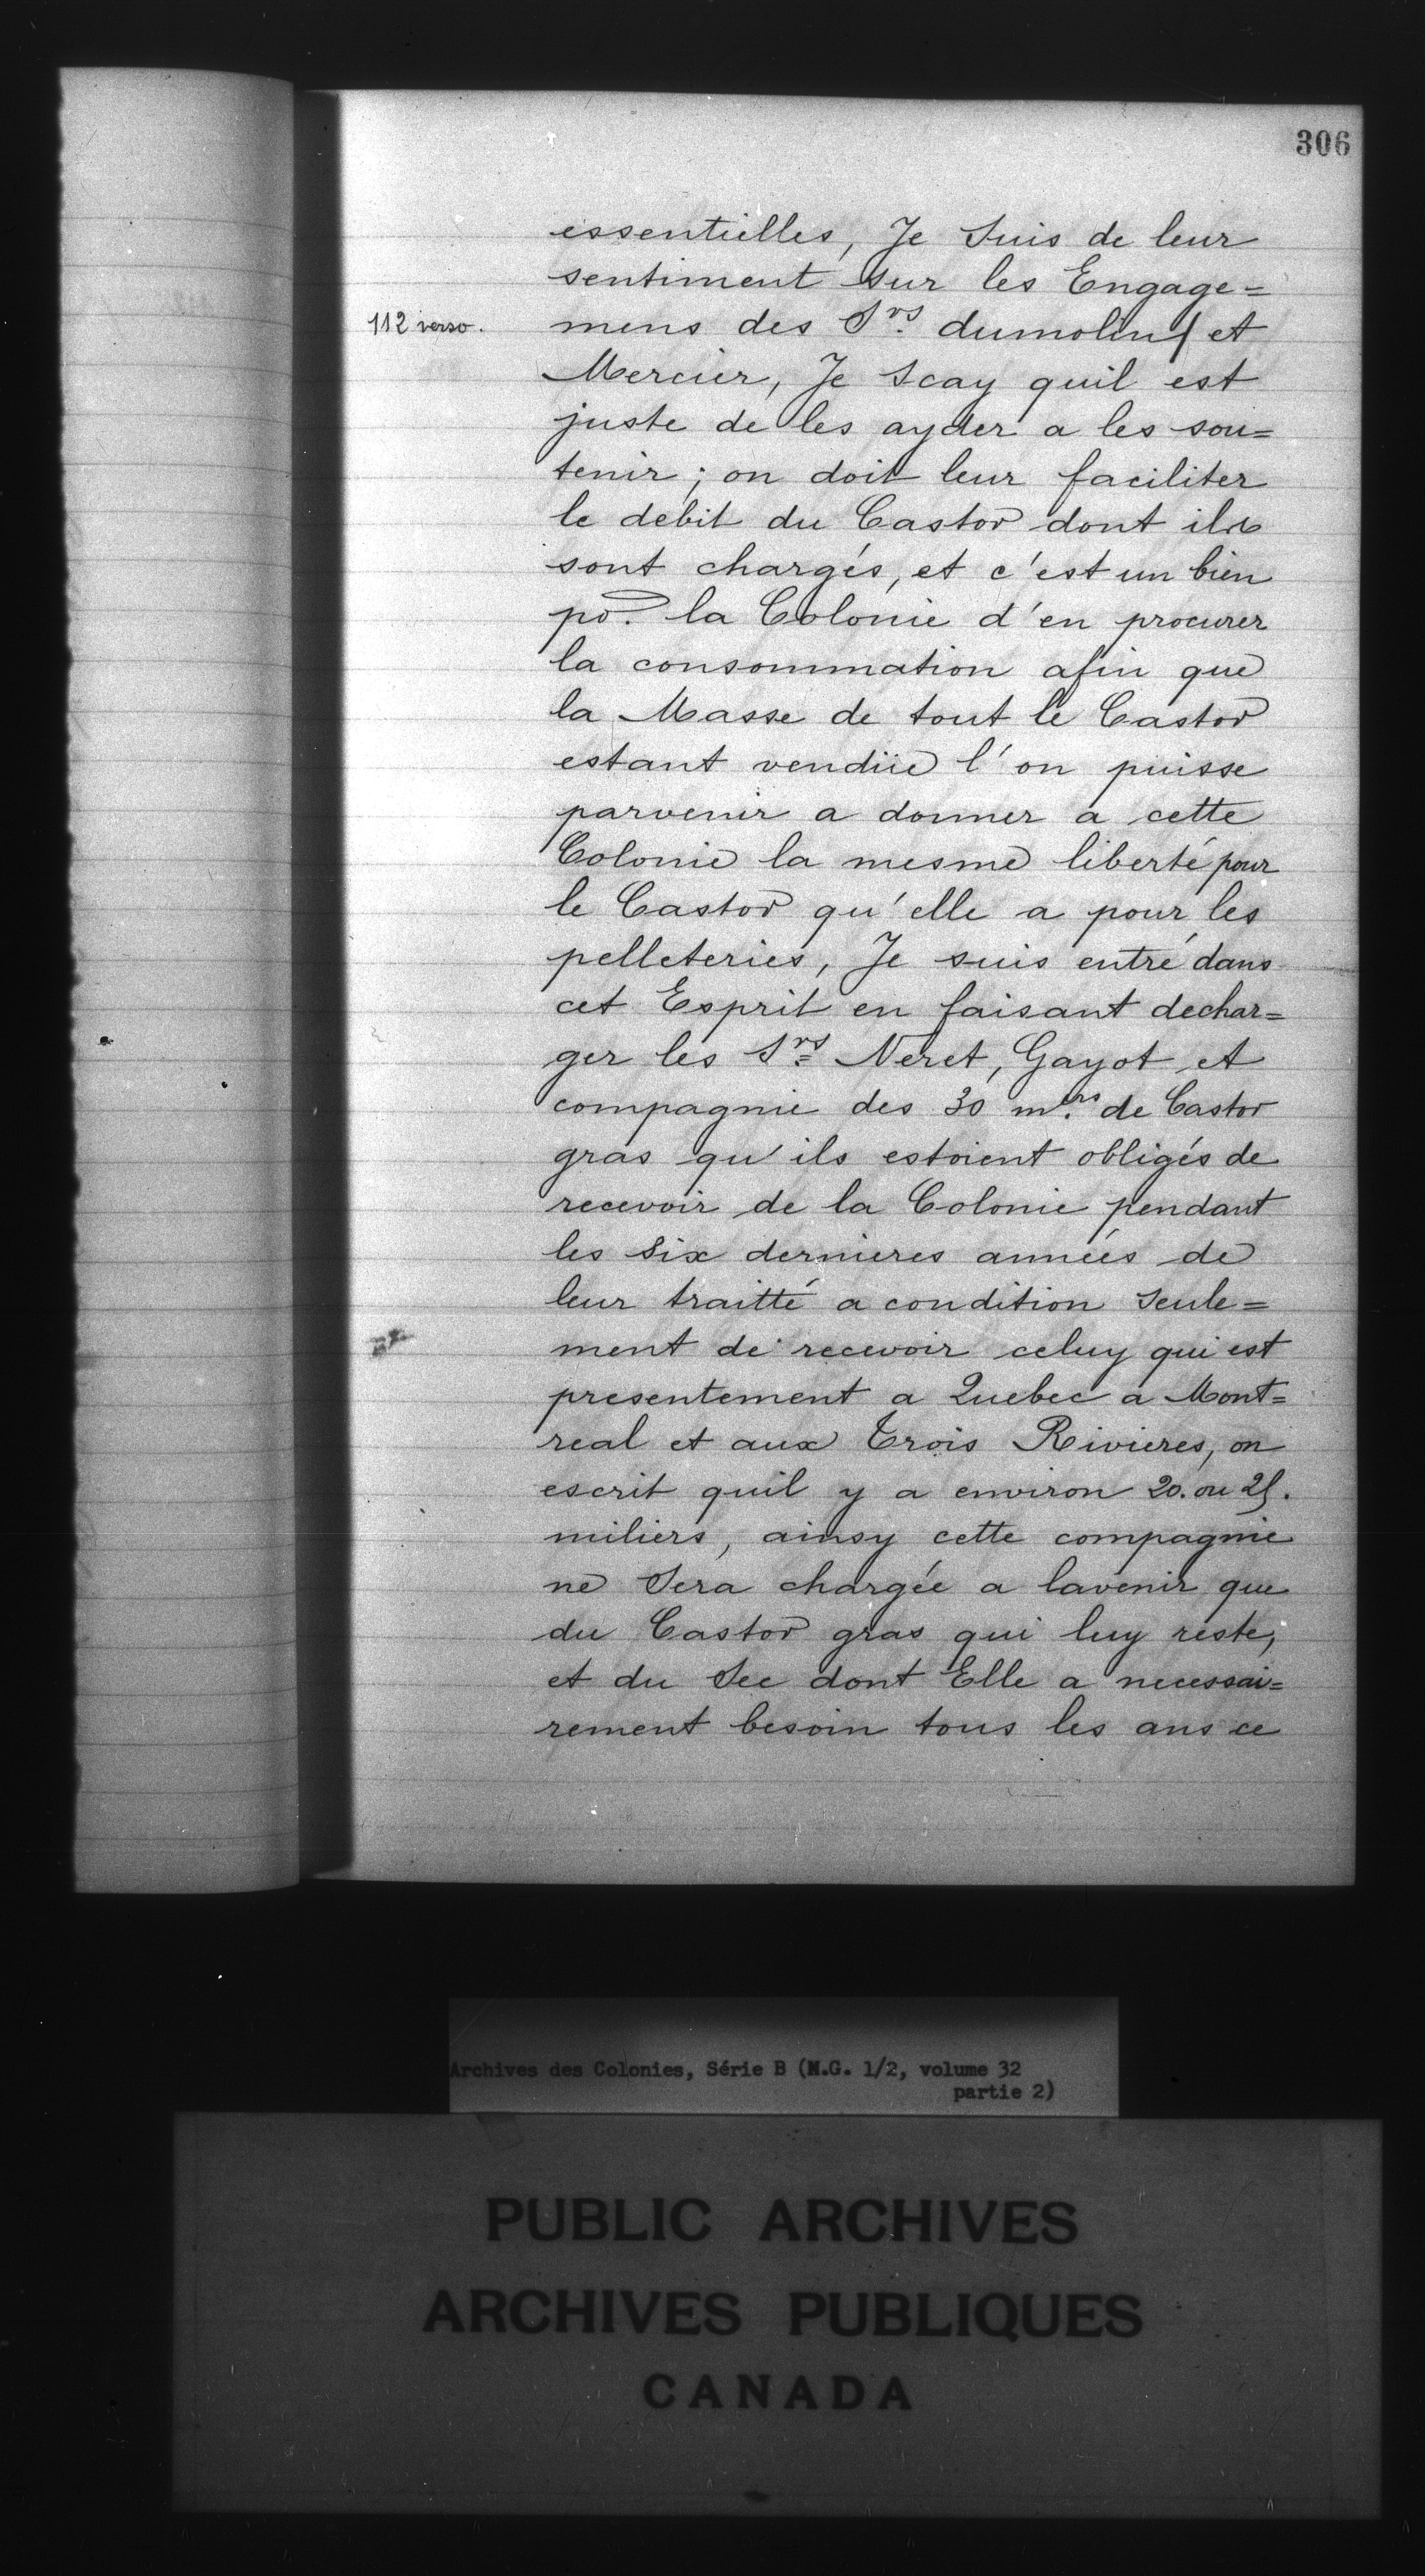 306
essentielles, Je Suis de leur
sentiment sur les Engage=
112 verso. mens des Srs. dumolin/ et
Mercier, Je Scay quil est
juste de les ayder a les sou=
tenir; on doit leur faciliter
le debit du Castor dont ils
sont chargés, et c'est un bien
po. la Colonie d'en procurer
la consommation afin que
la Masse de tout le Castor
estant vendüe l'on puisse
parvenir a donner a cette
Colonie la mesme liberté pour
le Castor qu'elle a pour les
pelleteries, Je suis entré dans
cet Esprit en faisant dechar=
ger les Srs Neret, Gayot et
compagnie des 30 mrs. de Castor
gras qu'ils estoient obligés de
recevoir de la Colonie pendant
les Six dernieres années de
leur traitté a condition Seule=
ment de recevoir celuy qui est
presentement a Quebec a Mont=
real et aux Trois Rivieres, on
escrit quil y a environ 20. ou 25.
miliers, ainsy cette compagnie
ne Sera chargée a lavenir que
du Castor gras qui luy reste,
et du Sec dont Elle a necessai=
rement besoin tous les ans ce
Archives des Colonies, Série B (M.G. 1/2, volume 32
partie 2)
PUBLIC ARCHIVES
ARCHIVES PUBLIQUES
CANADA